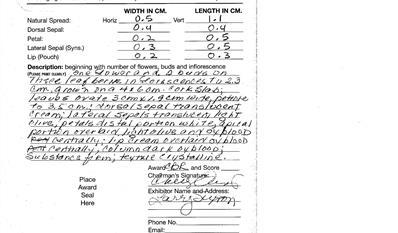 WIDTH IN CM. LENGTH IN CM.
Natural Spread: Horiz 0.5 Vert 1.1
Dorsal Sepal: 0.4 0.4
Petal: 0.2 0.5
Lateral Sepal (Syns.) 0.3 0.5
Lip (Pouch) 0.2 0.2
Description: beginning with number of flowers, buds and inflorescence
(PLEASE PRINT CLEARLY) one flower and 2 buds on
three leaf borne inflorescences to 2.3
cm. grown on a 4x6cm. cork slab;
leaves ovate 3cm x 1.9cm wide, petiole
to 3.5 cm; dorsal sepal translucent
cream; lateral sepals translucent light
olive, petals distal portion white, apical
portion overlaid light olive and oxblood
centrally; lip cream overlaid oxblood
centrally, column dark oxblood;
substance firm; texture crystalline.
Award CBR and Score
Chairman's Signature:
Place
Award
Seal
Here
Exhibitor Name and Address:
Phone No.
Email: